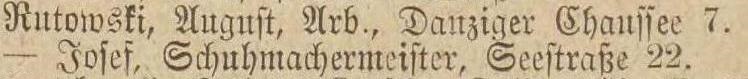 Rutowski, August, Arb., Danziger Chaussee 7.
— Josef, Schuhmachermeister, Seestraße 22.